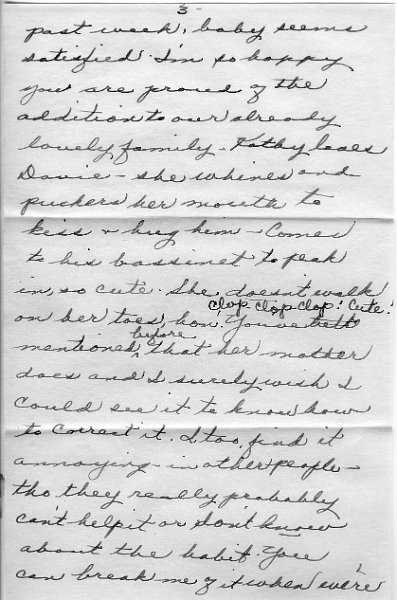 3-
past week, baby seems
satisfied. I'm so happy
you are proud of the
addition to our already
lovely family - Kathy loves
Davie - she whines and
puckers her mouth to
kiss + hug him - Comes
to his bassinet to peak
in, so cute. She doesn't walk
clop clop clop! Cute!
on her toes, hon. You've
before
mentioned that her mother
does and I surely wish I
could see it to know how
to correct it. I too, find it
annoying - in other people -
tho they really probably
can't help it or don't know
about the habit. You
can break me of it when we're